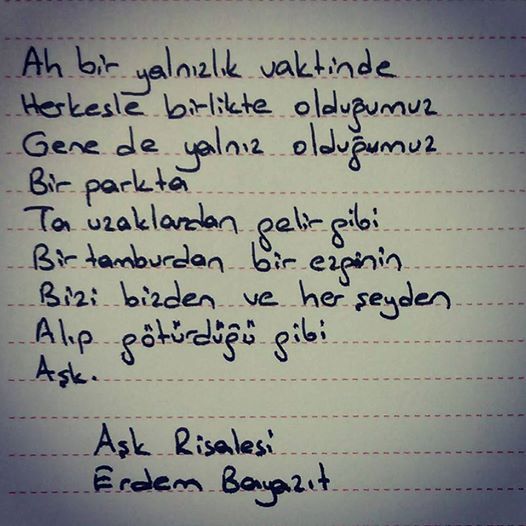 Ah bir yalnızlık vaktinde
Herkesle birlikte olduğumuz
Gene de yalnız olduğumuz
Bir parkta
Ta uzaklardan gelir gibi
Bir tamburdan bir ezginin
Bizi bizden ve her şeyden
Alıp götürdüğü gibi
Aşk.
Aşk Risalesi
Erdem Bayazıt